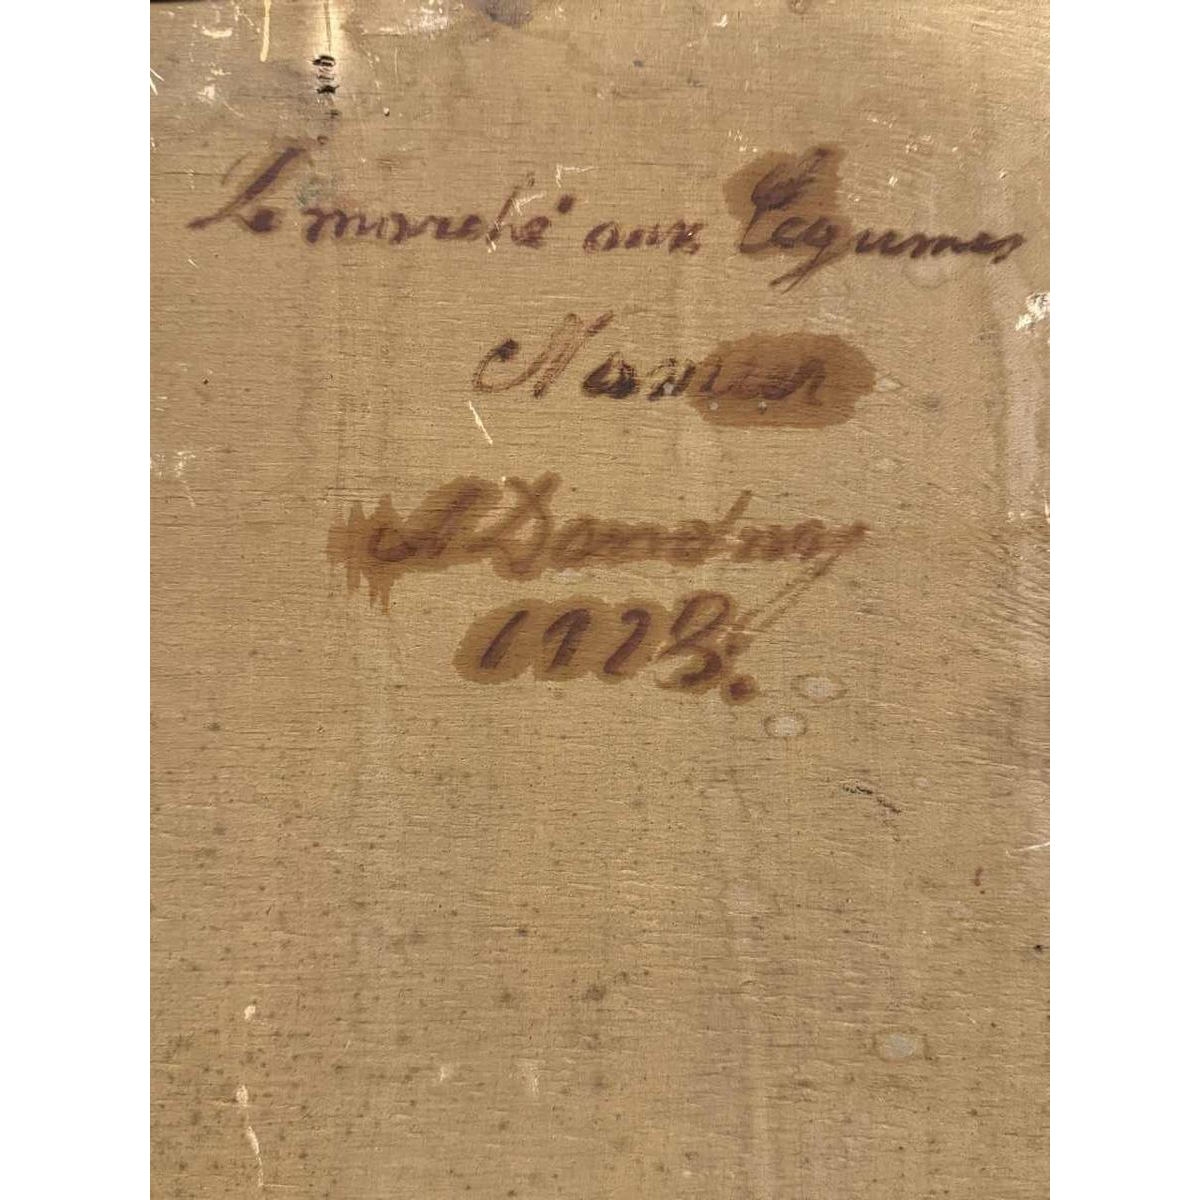 Le marché aux Légumes
Namur
A Dandoy
1928.